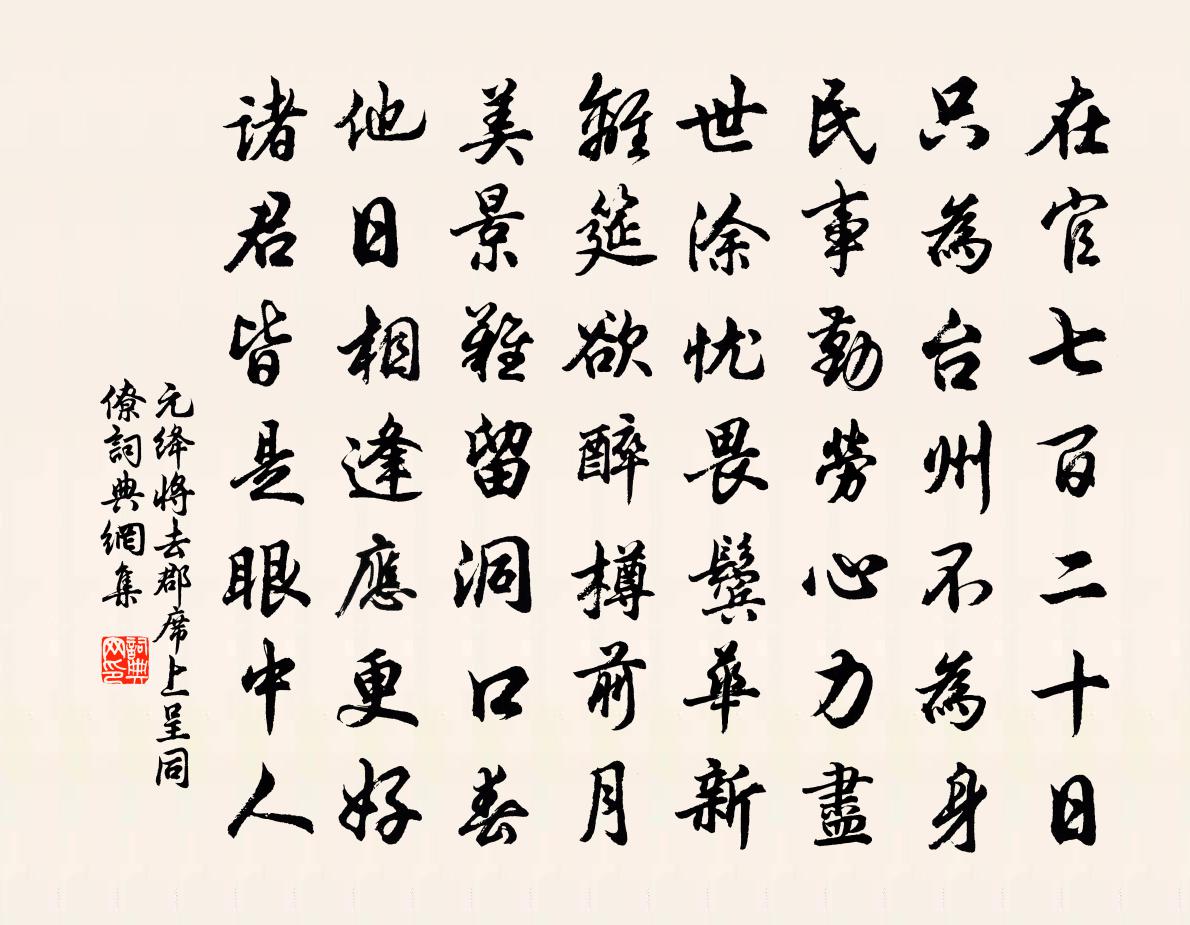 在官七百二十日
只為台州不為身
民事勤勞心力盡
世塗忧畏鬢華新
離筵欲醉樽前月
美景難留洞口春
他日相逢應更好
諸君皆是眼中人
元绛將去郡席上呈同
僚詞典網集
詞典
网印